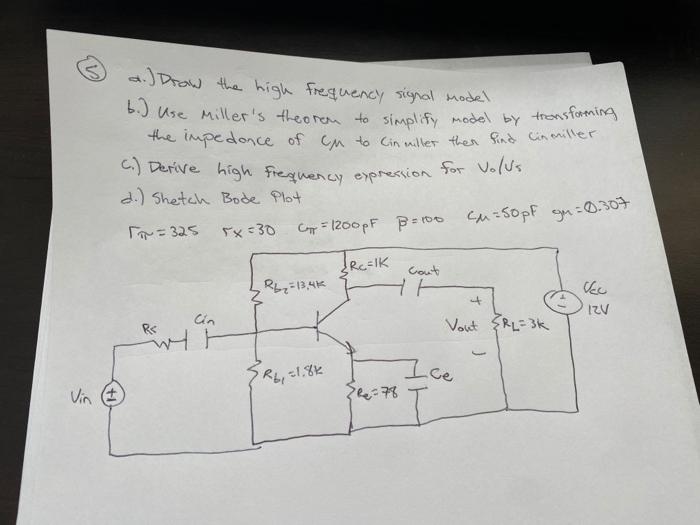 5
a.) Draw the high frequency signal model
b.) Use Miller's theorem to simplify model by transforming
the impedance of Cμ to Cin miller then find Cin miller
c.) Derive high frequency expression for Vo/Vs
d.) Sketch Bode Plot
rπ = 325 rx = 30 Cπ = 1200pF β = 100 Cμ = 50pF gm = 0.307
Rc = 1K
Cout
Rb2 = 13.4K
VCC
12V
Rs
Cin
+
Vout
RL = 3K
-
Rb1 = 1.8K
Ce
Re = 78
Vin